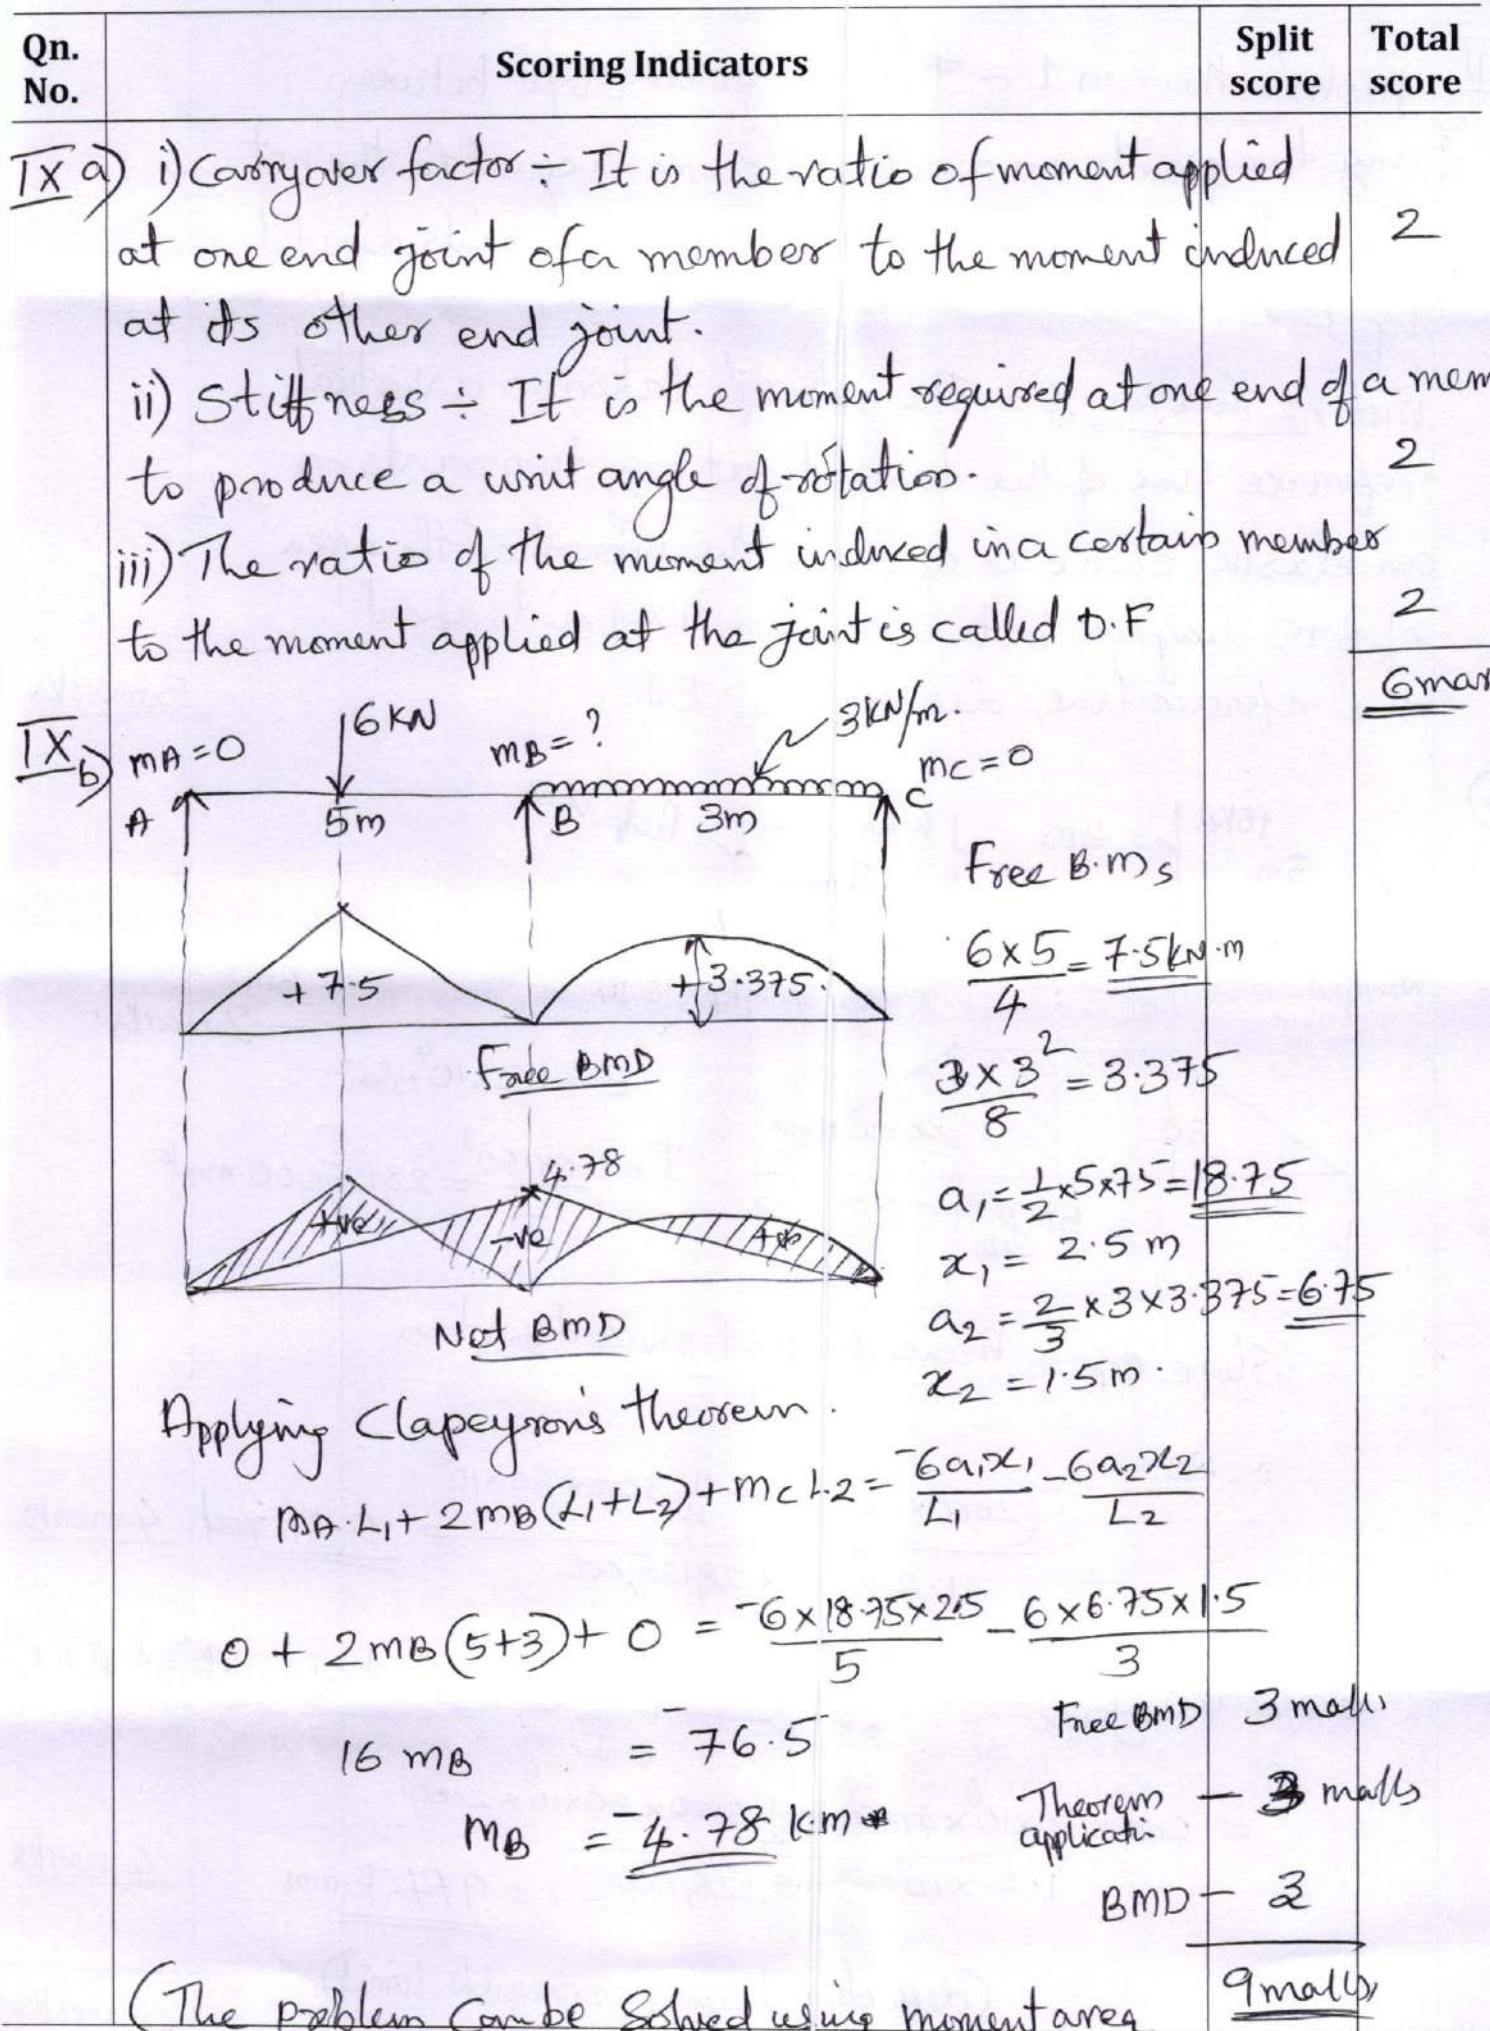 Qn. No.
Scoring Indicators
Split score
Total score
IX a) i) Carryover factor ÷ It is the ratio of moment applied
at one end joint of a member to the moment induced
2
at its other end joint.
ii) Stiffness ÷ It is the moment required at one end of a mem
to produce a unit angle of rotation.
2
iii) The ratio of the moment induced in a certain member
to the moment applied at the joint is called D.F
2
6mar
IX b) mA = 0
6 KN
mB = ?
3KN/m.
mC = 0
A
5m
B
3m
C
Free B.Ms
+ 7.5
+3.375.
6 × 5 / 4 = 7.5 kN.m
Free BMD
3 × 3² / 8 = 3.375
4.78
+ve
-ve
+ve
a₁ = 1/2 × 5 × 7.5 = 18.75
x₁ = 2.5 m
a₂ = 2/3 × 3 × 3.375 = 6.75
Net BMD
x₂ = 1.5m.
Applying Clapeyron's theorem.
mA.L₁ + 2mB(L₁+L₂) + mC L.2 = -6a₁x₁/L₁ - 6a₂x₂/L₂
0 + 2mB(5+3) + 0 = -6×18.75×2.5/5 - 6×6.75×1.5/3
16 mB = -76.5
Free BMD 3
mB = -4.78
Theorem - 3
BMD - 3
9
(The problem can be Solved using moment area